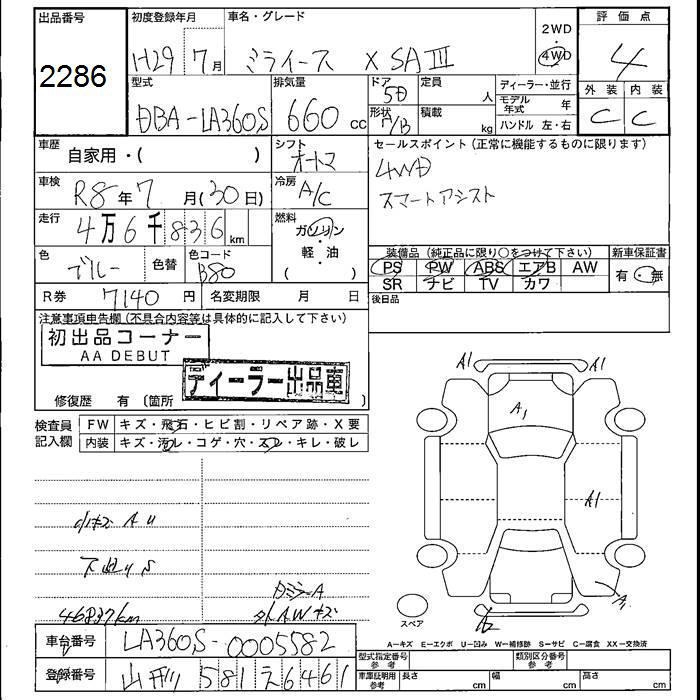 出品番号
2286
初度登録年月
H29 7月
車名・グレード
ミライース X SAⅢ
2WD
・
4WD
評価点
4
型式
DBA-LA360S
排気量
660 cc
ドア
5D
形状
定員
人
積載
kg
ディーラー・並行
モデル年式 年
ハンドル 左・右
外装 内装
C C
車歴
自家用・( )
シフト
オートマ
セールスポイント (正常に機能するものに限ります)
4WD
スマートアシスト
車検
R8年7月(30日)
冷房
A/C
走行
4万6千836km
燃料
ガソリン
・
軽・油
( )
色
ブルー
色替
色コード
B80
装備品 (純正品に限り○をつけて下さい)
PS PW ABS エアB AW
SR ナビ TV カワ
新車保証書
有・無
R券 7140円
名変期限 月 日
後日品
注意事項申告欄 (不具合内容等は具体的に記入して下さい)
初出品コーナー
AA DEBUT
ディーラー出品車
修復歴 有 〔箇所
検査員
記入欄
FW キズ・飛石・ヒビ割・リペア跡・X要
内装 キズ・汚レ・コゲ・穴・スレ・キレ・破レ
A1 A1
A1
A1
46837km
スペア
A-キズ E-エクボ U-凹み W-補修跡 S-サビ C-腐食 XX-交換済
車台番号 LA360S-0005582
型式指定番号
参考
類別区分番号
参考
登録番号 581 え6461
車庫証明用
参考
長さ cm 幅 cm 高さ cm